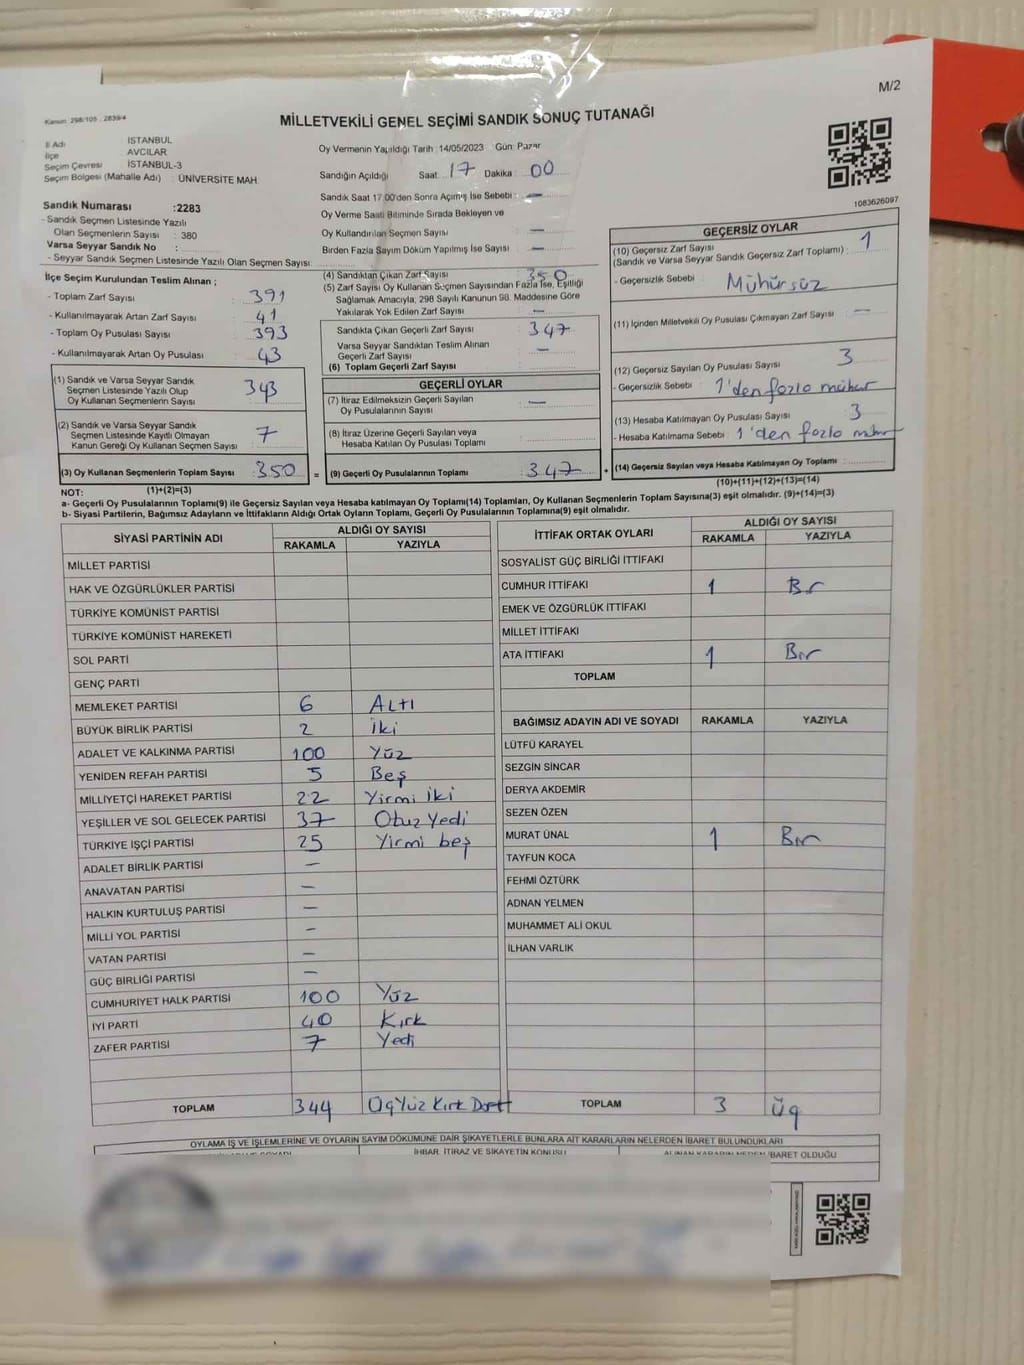 M/2
Kanun: 298/105 , 2839/4
MİLLETVEKİLİ GENEL SEÇİMİ SANDIK SONUÇ TUTANAĞI
İl Adı İSTANBUL
İlçe AVCILAR
Seçim Çevresi İSTANBUL-3
Seçim Bölgesi (Mahalle Adı) : ÜNİVERSİTE MAH.
Sandık Numarası :2283
- Sandık Seçmen Listesinde Yazılı
Olan Seçmenlerin Sayısı : 380
Varsa Seyyar Sandık No :
- Seyyar Sandık Seçmen Listesinde Yazılı Olan Seçmen Sayısı:
Oy Vermenin Yapıldığı Tarih :14/05/2023 Gün: Pazar
Sandığın Açıldığı Saat : 17 Dakika : 00
Sandık Saat 17.00'den Sonra Açılmış İse Sebebi : —
Oy Verme Saati Bitiminde Sırada Bekleyen ve
Oy Kullandırılan Seçmen Sayısı : —
Birden Fazla Sayım Döküm Yapılmış İse Sayısı : —
1083626097
İlçe Seçim Kurulundan Teslim Alınan ;
- Toplam Zarf Sayısı : 391
- Kullanılmayarak Artan Zarf Sayısı : 41
- Toplam Oy Pusulası Sayısı : 393
- Kullanılmayarak Artan Oy Pusulası : 43
(1) Sandık ve Varsa Seyyar Sandık
Seçmen Listesinde Yazılı Olup
Oy Kullanan Seçmenlerin Sayısı 343
(2) Sandık ve Varsa Seyyar Sandık
Seçmen Listesinde Kayıtlı Olmayan
Kanun Gereği Oy Kullanan Seçmen Sayısı : 7
(3) Oy Kullanan Seçmenlerin Toplam Sayısı : 350 =
(1)+(2)=(3)
(4) Sandıktan Çıkan Zarf Sayısı : 350
(5) Zarf Sayısı Oy Kullanan Seçmen Sayısından Fazla İse, Eşitliği
Sağlamak Amacıyla; 298 Sayılı Kanunun 98. Maddesine Göre
Yakılarak Yok Edilen Zarf Sayısı : —
Sandıkta Çıkan Geçerli Zarf Sayısı : 347
Varsa Seyyar Sandıktan Teslim Alınan
Geçerli Zarf Sayısı : —
(6) Toplam Geçerli Zarf Sayısı :
GEÇERLİ OYLAR
(7) İtiraz Edilmeksizin Geçerli Sayılan
Oy Pusulalarının Sayısı : —
(8) İtiraz Üzerine Geçerli Sayılan veya
Hesaba Katılan Oy Pusulası Toplamı :
(9) Geçerli Oy Pusulalarının Toplamı : 347 +
GEÇERSİZ OYLAR
(10) Geçersiz Zarf Sayısı
(Sandık ve Varsa Seyyar Sandık Geçersiz Zarf Toplamı) : 1
- Geçersizlik Sebebi : Mühürsüz
(11) İçinden Milletvekili Oy Pusulası Çıkmayan Zarf Sayısı : —
(12) Geçersiz Sayılan Oy Pusulası Sayısı : 3
- Geçersizlik Sebebi : 1'den fazla mühür
(13) Hesaba Katılmayan Oy Pusulası Sayısı : 3
- Hesaba Katılmama Sebebi : 1'den fazla mühür
(14) Geçersiz Sayılan veya Hesaba Katılmayan Oy Toplamı :
(10)+(11)+(12)+(13)=(14)
NOT:
a- Geçerli Oy Pusulalarının Toplamı(9) ile Geçersiz Sayılan veya Hesaba katılmayan Oy Toplamı(14) Toplamları, Oy Kullanan Seçmenlerin Toplam Sayısına(3) eşit olmalıdır. (9)+(14)=(3)
b- Siyasi Partilerin, Bağımsız Adayların ve İttifakların Aldığı Ortak Oyların Toplamı, Geçerli Oy Pusulalarının Toplamına(9) eşit olmalıdır.
SİYASİ PARTİNİN ADI ALDIĞI OY SAYISI
RAKAMLA YAZIYLA
MİLLET PARTİSİ
HAK VE ÖZGÜRLÜKLER PARTİSİ
TÜRKİYE KOMÜNİST PARTİSİ
TÜRKİYE KOMÜNİST HAREKETİ
SOL PARTİ
GENÇ PARTİ
MEMLEKET PARTİSİ 6 Altı
BÜYÜK BİRLİK PARTİSİ 2 İki
ADALET VE KALKINMA PARTİSİ 100 Yüz
YENİDEN REFAH PARTİSİ 5 Beş
MİLLİYETÇİ HAREKET PARTİSİ 22 Yirmi iki
YEŞİLLER VE SOL GELECEK PARTİSİ 37 Otuz Yedi
TÜRKİYE İŞÇİ PARTİSİ 25 Yirmi beş
ADALET BİRLİK PARTİSİ —
ANAVATAN PARTİSİ —
HALKIN KURTULUŞ PARTİSİ —
MİLLİ YOL PARTİSİ —
VATAN PARTİSİ —
GÜÇ BİRLİĞİ PARTİSİ —
CUMHURİYET HALK PARTİSİ 100 Yüz
İYİ PARTİ 40 Kırk
ZAFER PARTİSİ 7 Yedi
TOPLAM 344 ÜçYüz Kırk Dört
İTTİFAK ORTAK OYLARI ALDIĞI OY SAYISI
RAKAMLA YAZIYLA
SOSYALİST GÜÇ BİRLİĞİ İTTİFAKI
CUMHUR İTTİFAKI 1 Bir
EMEK VE ÖZGÜRLÜK İTTİFAKI
MİLLET İTTİFAKI
ATA İTTİFAKI 1 Bir
TOPLAM
BAĞIMSIZ ADAYIN ADI VE SOYADI RAKAMLA YAZIYLA
LÜTFÜ KARAYEL
SEZGİN SİNCAR
DERYA AKDEMİR
SEZEN ÖZEN
MURAT ÜNAL 1 Bir
TAYFUN KOCA
FEHMİ ÖZTÜRK
ADNAN YELMEN
MUHAMMET ALİ OKUL
İLHAN VARLIK
TOPLAM 3 Üç
OYLAMA İŞ VE İŞLEMLERİNE VE OYLARIN SAYIM DÖKÜMÜNE DAİR ŞİKAYETLERLE BUNLARA AİT KARARLARIN NELERDEN İBARET BULUNDUKLARI
İHBAR, İTİRAZ VE ŞİKAYETİN KONUSU ALINAN KARARIN NEDEN İBARET OLDUĞU